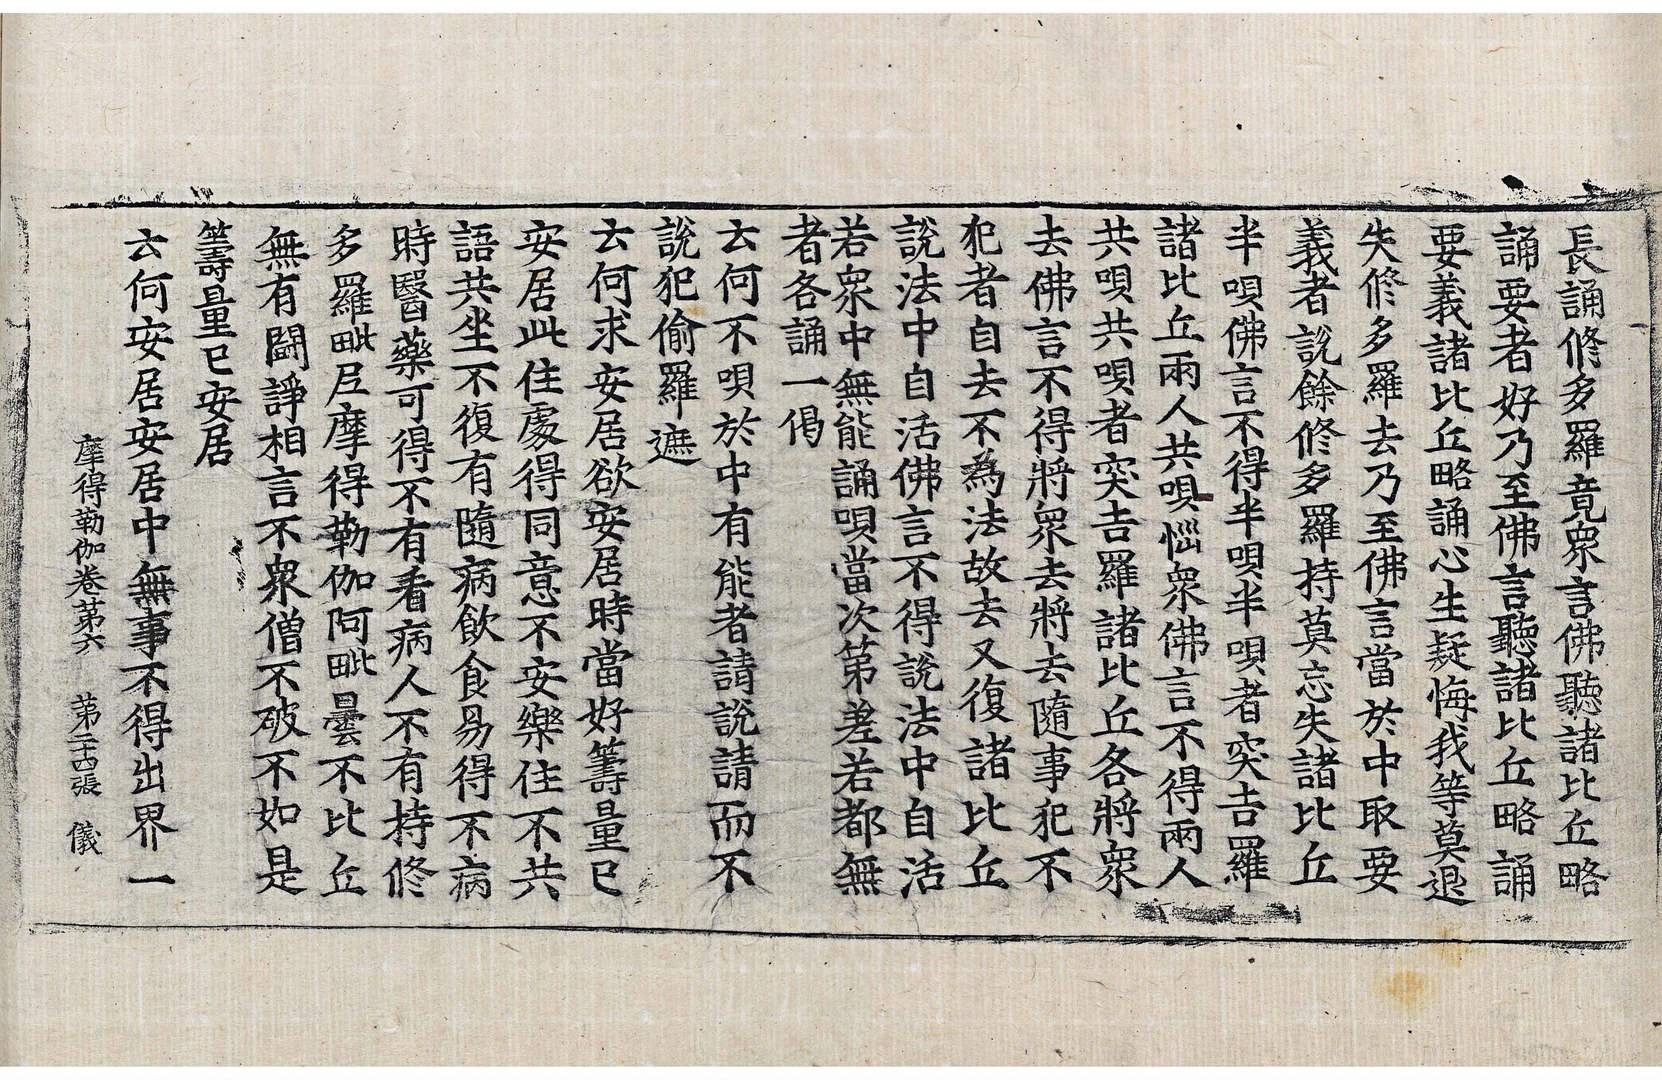 長誦修多羅竟衆言佛聽諸比丘略
誦要者好乃至佛言聽諸比丘略誦
要義諸比丘略誦心生疑悔我等莫退
失修多羅去乃至佛言當於中取要
義者說餘修多羅持莫忘失諸比丘
半唄佛言不得半唄半唄者突吉羅
諸比丘兩人共唄惱衆佛言不得兩人
共唄共唄者突吉羅諸比丘各將衆
去佛言不得將衆去將去隨事犯不
犯者自去不為法故去又復諸比丘
說法中自活佛言不得說法中自活
若衆中無能誦唄當次第差若都無
者各誦一偈
云何不唄於中有能者請說請而不
說犯偷羅遮
云何求安居欲安居時當好籌量已
安居此住處得同意不安樂住不共
語共坐不復有隨病飲食易得不病
時醫藥可得不有看病人不有持修
多羅毗尼摩得勒伽阿毗曇不比丘
無有鬪諍相言不衆僧不破不如是
籌量已安居
云何安居安居中無事不得出界一
摩得勒伽卷第六 第二十四張 儀